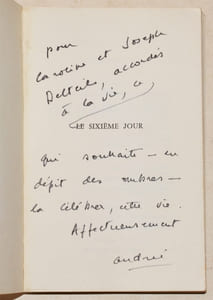 pour
Caroline et Joseph
Delteil, accordés
à la vie, ce
LE SIXIÈME JOUR
qui souhaite — en
dépit des ombres —
la célébrer, cette vie.
Affectueusement
andrée